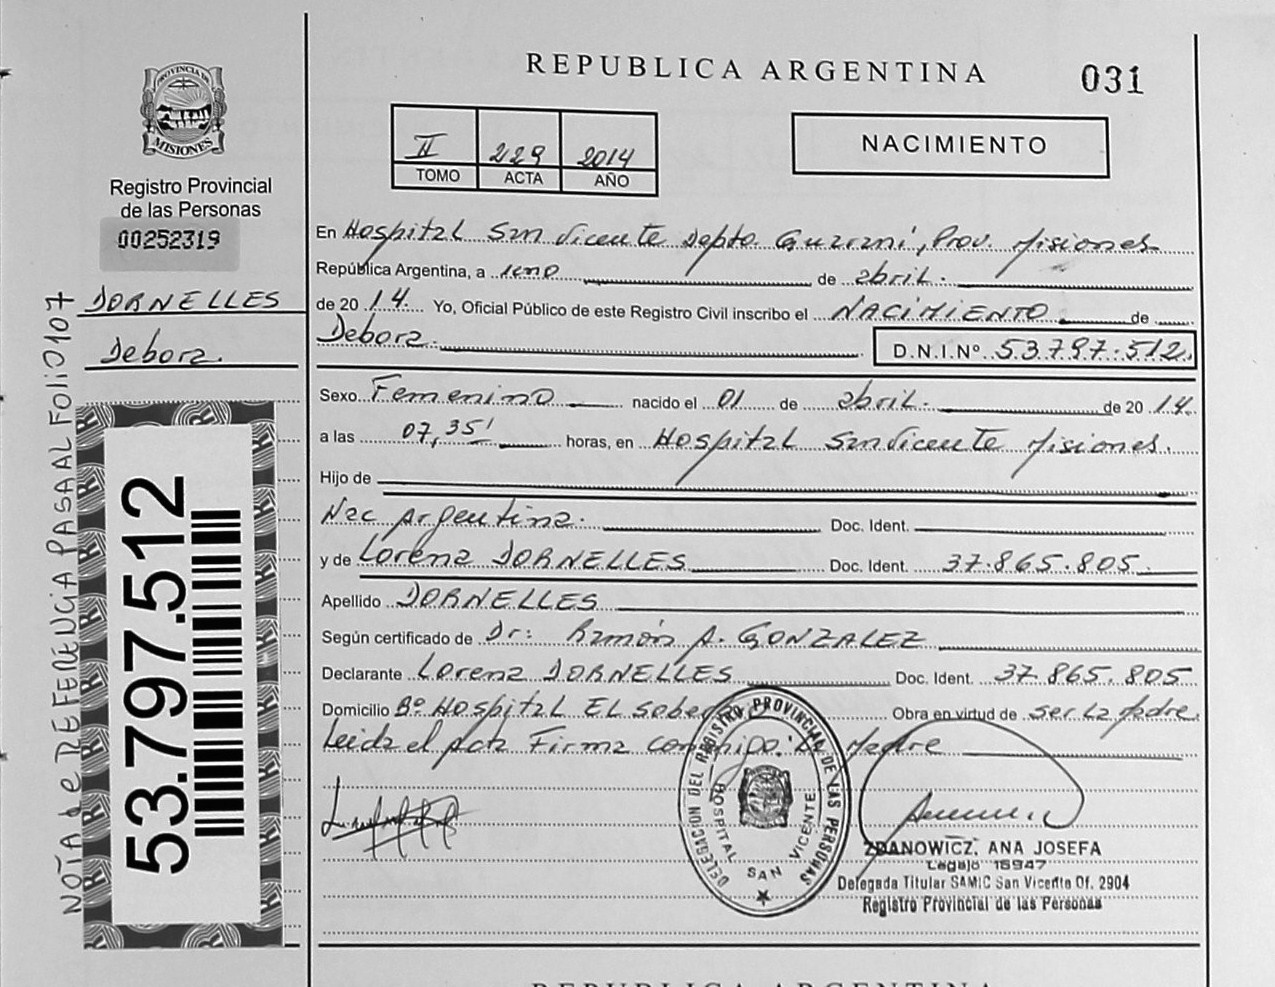 REPUBLICA ARGENTINA
031
PROVINCIA DE
MISIONES
Registro Provincial
de las Personas
00252319
DORNELLES
Debora.
NOTA de REFERENCIA PASA AL FOLIO 107
53.797.512
II 229 2014
TOMO ACTA AÑO
NACIMIENTO
En Hospital San Vicente Depto Guarani, Prov. Misiones
República Argentina, a uno de abril.
de 2014. Yo, Oficial Público de este Registro Civil inscribo el NACIMIENTO de
Debora. D.N.I.Nº 53.797.512.
Sexo Femenino nacido el 01 de abril. de 2014.
a las 07,35' horas, en Hospital San Vicente Misiones.
Hijo de
Nac Argentina. Doc. Ident.
y de Lorena DORNELLES Doc. Ident. 37.865.805.
Apellido DORNELLES
Según certificado de Dr: Ramón A. GONZALEZ
Declarante Lorena DORNELLES Doc. Ident. 37.865.805
Domicilio Bº Hospital El Obra en virtud de ser la Madre.
Leida el Acta Firma conmigo: La Madre
DELEGACION DEL REGISTRO PROVINCIAL DE LAS PERSONAS
HOSPITAL SAN VICENTE
ZDANOWICZ, ANA JOSEFA
Legajo 15947
Delegada Titular SAMIC San Vicente Of. 2904
Registro Provincial de las Personas
REPUBLICA ARGENTINA